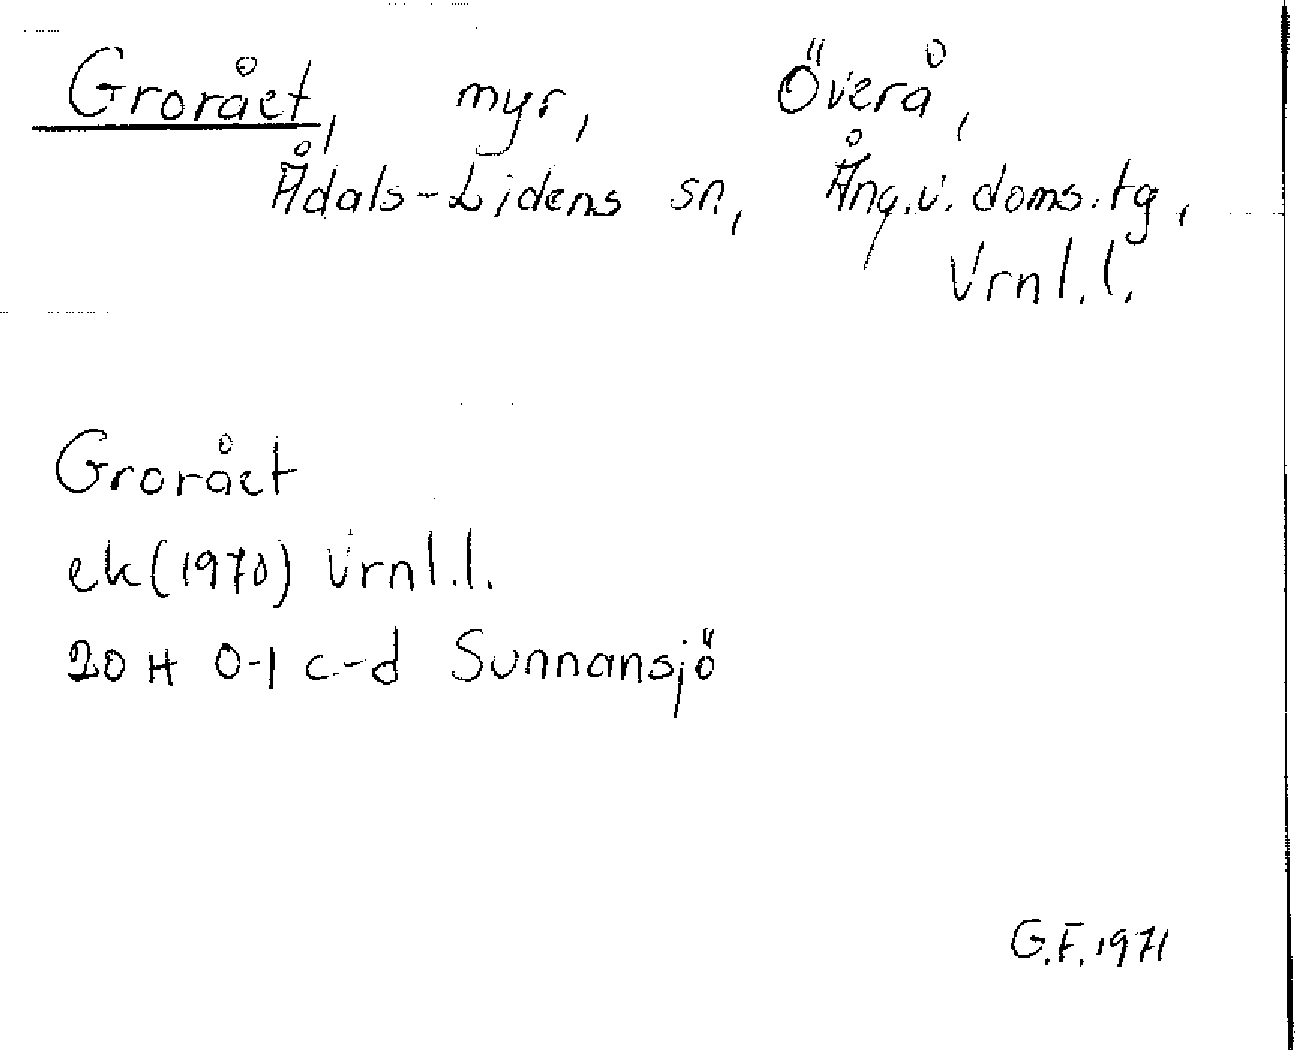 Grorået, myr, Överå,
Ådals-Lidens sn, Ång.v.doms.tg,
Vrnl.l.
Grorået
ek(1970) Vrnl.l.
20 H 0-1 c-d Sunnansjö
G.F. 1971